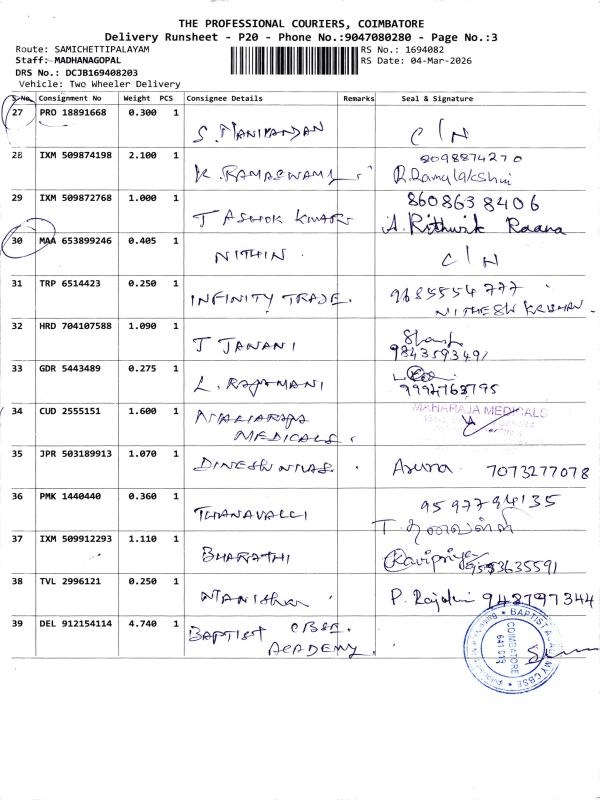 THE PROFESSIONAL COURIERS, COIMBATORE
Delivery Runsheet - P20 - Phone No.:9047080280 - Page No.:3
Route: SAMICHETTIPALAYAM
Staff: MADHANAGOPAL
DRS No.: DCJB169408203
Vehicle: Two Wheeler Delivery
RS No.: 1694082
RS Date: 04-Mar-2026
S.No. Consignment No Weight PCS Consignee Details Remarks Seal & Signature
27 PRO 18891668 0.300 1 S. MANIKANDAN C/N
28 IXM 509874198 2.100 1 K. RAMASWAMY 8098874270
R.Ramalakshmi
29 IXM 509872768 1.000 1 T ASHOK KUMAR 8608638406
A. Rithwik Raana
30 MAA 653899246 0.405 1 NITHIN. C/N
31 TRP 6514423 0.250 1 INFINITY TRADE. 9685554777
NITHESH KRISHAN.
32 HRD 704107588 1.090 1 T JANANI
9843593491
33 GDR 5443489 0.275 1 L. RAJAMANI
9994763795
34 CUD 2555151 1.600 1 MAHARAJA MEDICALS. MAHARAJA MEDICALS
35 JPR 503189913 1.070 1 DINESH NIVAS. Aruna. 7073277078
36 PMK 1440440 0.360 1 THANAVALLI 9597794135
T. தனவள்ளி
37 IXM 509912293 1.110 1 BHARATHI Ravipriya 9553635591
38 TVL 2996121 0.250 1 P. Rajalni 942797344
39 DEL 912154114 4.740 1 BAPTIST CBSE. ACADEMY. BAPTIST ACADEMY CBSE
COIMBATORE
641 019